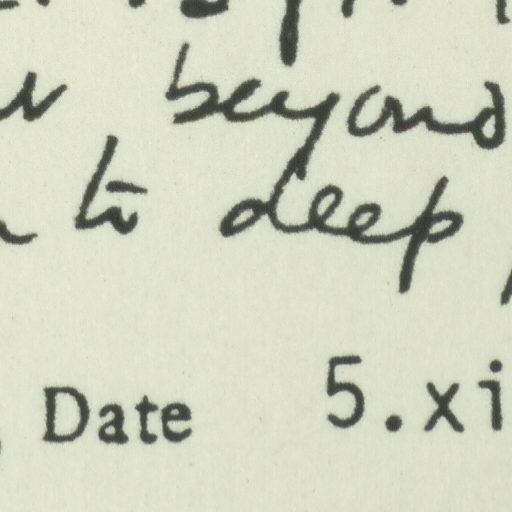 beyond
to deep
Date 5.xi